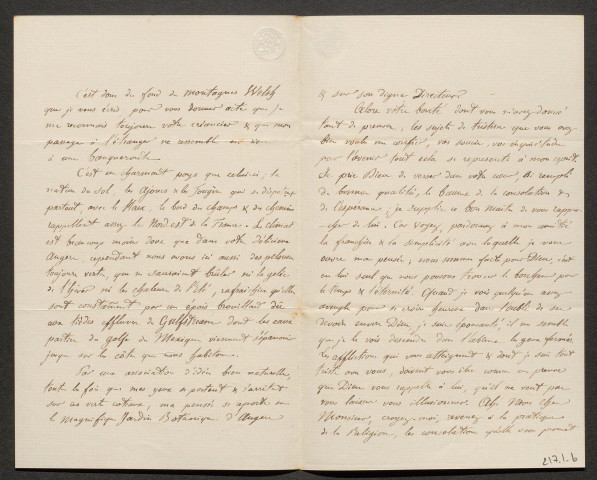 C'est donc du fond de montagnes Welsh
que je vous écris pour vous donner acte que je
me reconnais toujours votre créancier & que mon
passage à l'étranger ne ressemble en rien
à une banqueroute.
C'est un charmant pays que celui-ci, la
nature du sol, les Ajoncs & la fougère qui se disputent
partout, avec le Houx, le bord des champs & des chemins
rappellent assez le Nord-est de la France. Le climat
est beaucoup moins doux que dans votre délicieux
Angers cependant nous avons ici aussi des pelouses
toujours vertes, que ne sauraient brûler ni les gelées
de l'hiver ni les chaleurs de l'Été, rafraîchies qu'elles
sont constamment par un épais brouillard dû
aux tièdes effluves du Gulfstream dont les eaux
parties du golfe du Mexique viennent s'épanouir
jusque sur la côte que nous habitons.
Par une association d'idées bien naturelle,
toutes les fois que mes yeux se portent & s'arrêtent
sur ces verts coteaux, ma pensée se reporte sur
le magnifique Jardin Botanique d'Angers
& sur son digne Directeur.
Alors votre bonté dont vous m'avez donné
tant de preuves, les sujets de tristesse que vous avez
bien voulu me confier, vos soucis, vos inquiétudes
pour l'avenir tout cela se représente à mon esprit
& je prie Dieu de verser dans votre cœur, si rempli
de bonnes qualités, le baume de la consolation &
de l'espérance, je supplie ce bon maître de vous rappro-
cher de lui. Car voyez, pardonnez à mon amitié
la franchise & la simplicité avec laquelle je vous
ouvre ma pensée; nous sommes faits pour Dieu, c'est
en lui seul que nous pouvons trouver le bonheur pour
le temps & l'éternité. Quand je vois quelqu'un assez
aveugle pour se croire heureux dans l'oubli de ses
devoirs envers Dieu, je suis épouvanté; il me semble
que je le vois descendre dans l'abîme les yeux fermés.
Les afflictions qui vous atteignent & dont je suis tout
triste avec vous, doivent vous être comme une preuve
que Dieu vous rappelle à lui, qu'il ne veut pas
vous laisser vous illusionner. Ah! Mon cher
Monsieur, croyez-moi, revenez à la pratique
de la Religion, les consolations qu'elle vous promet
217.1-b